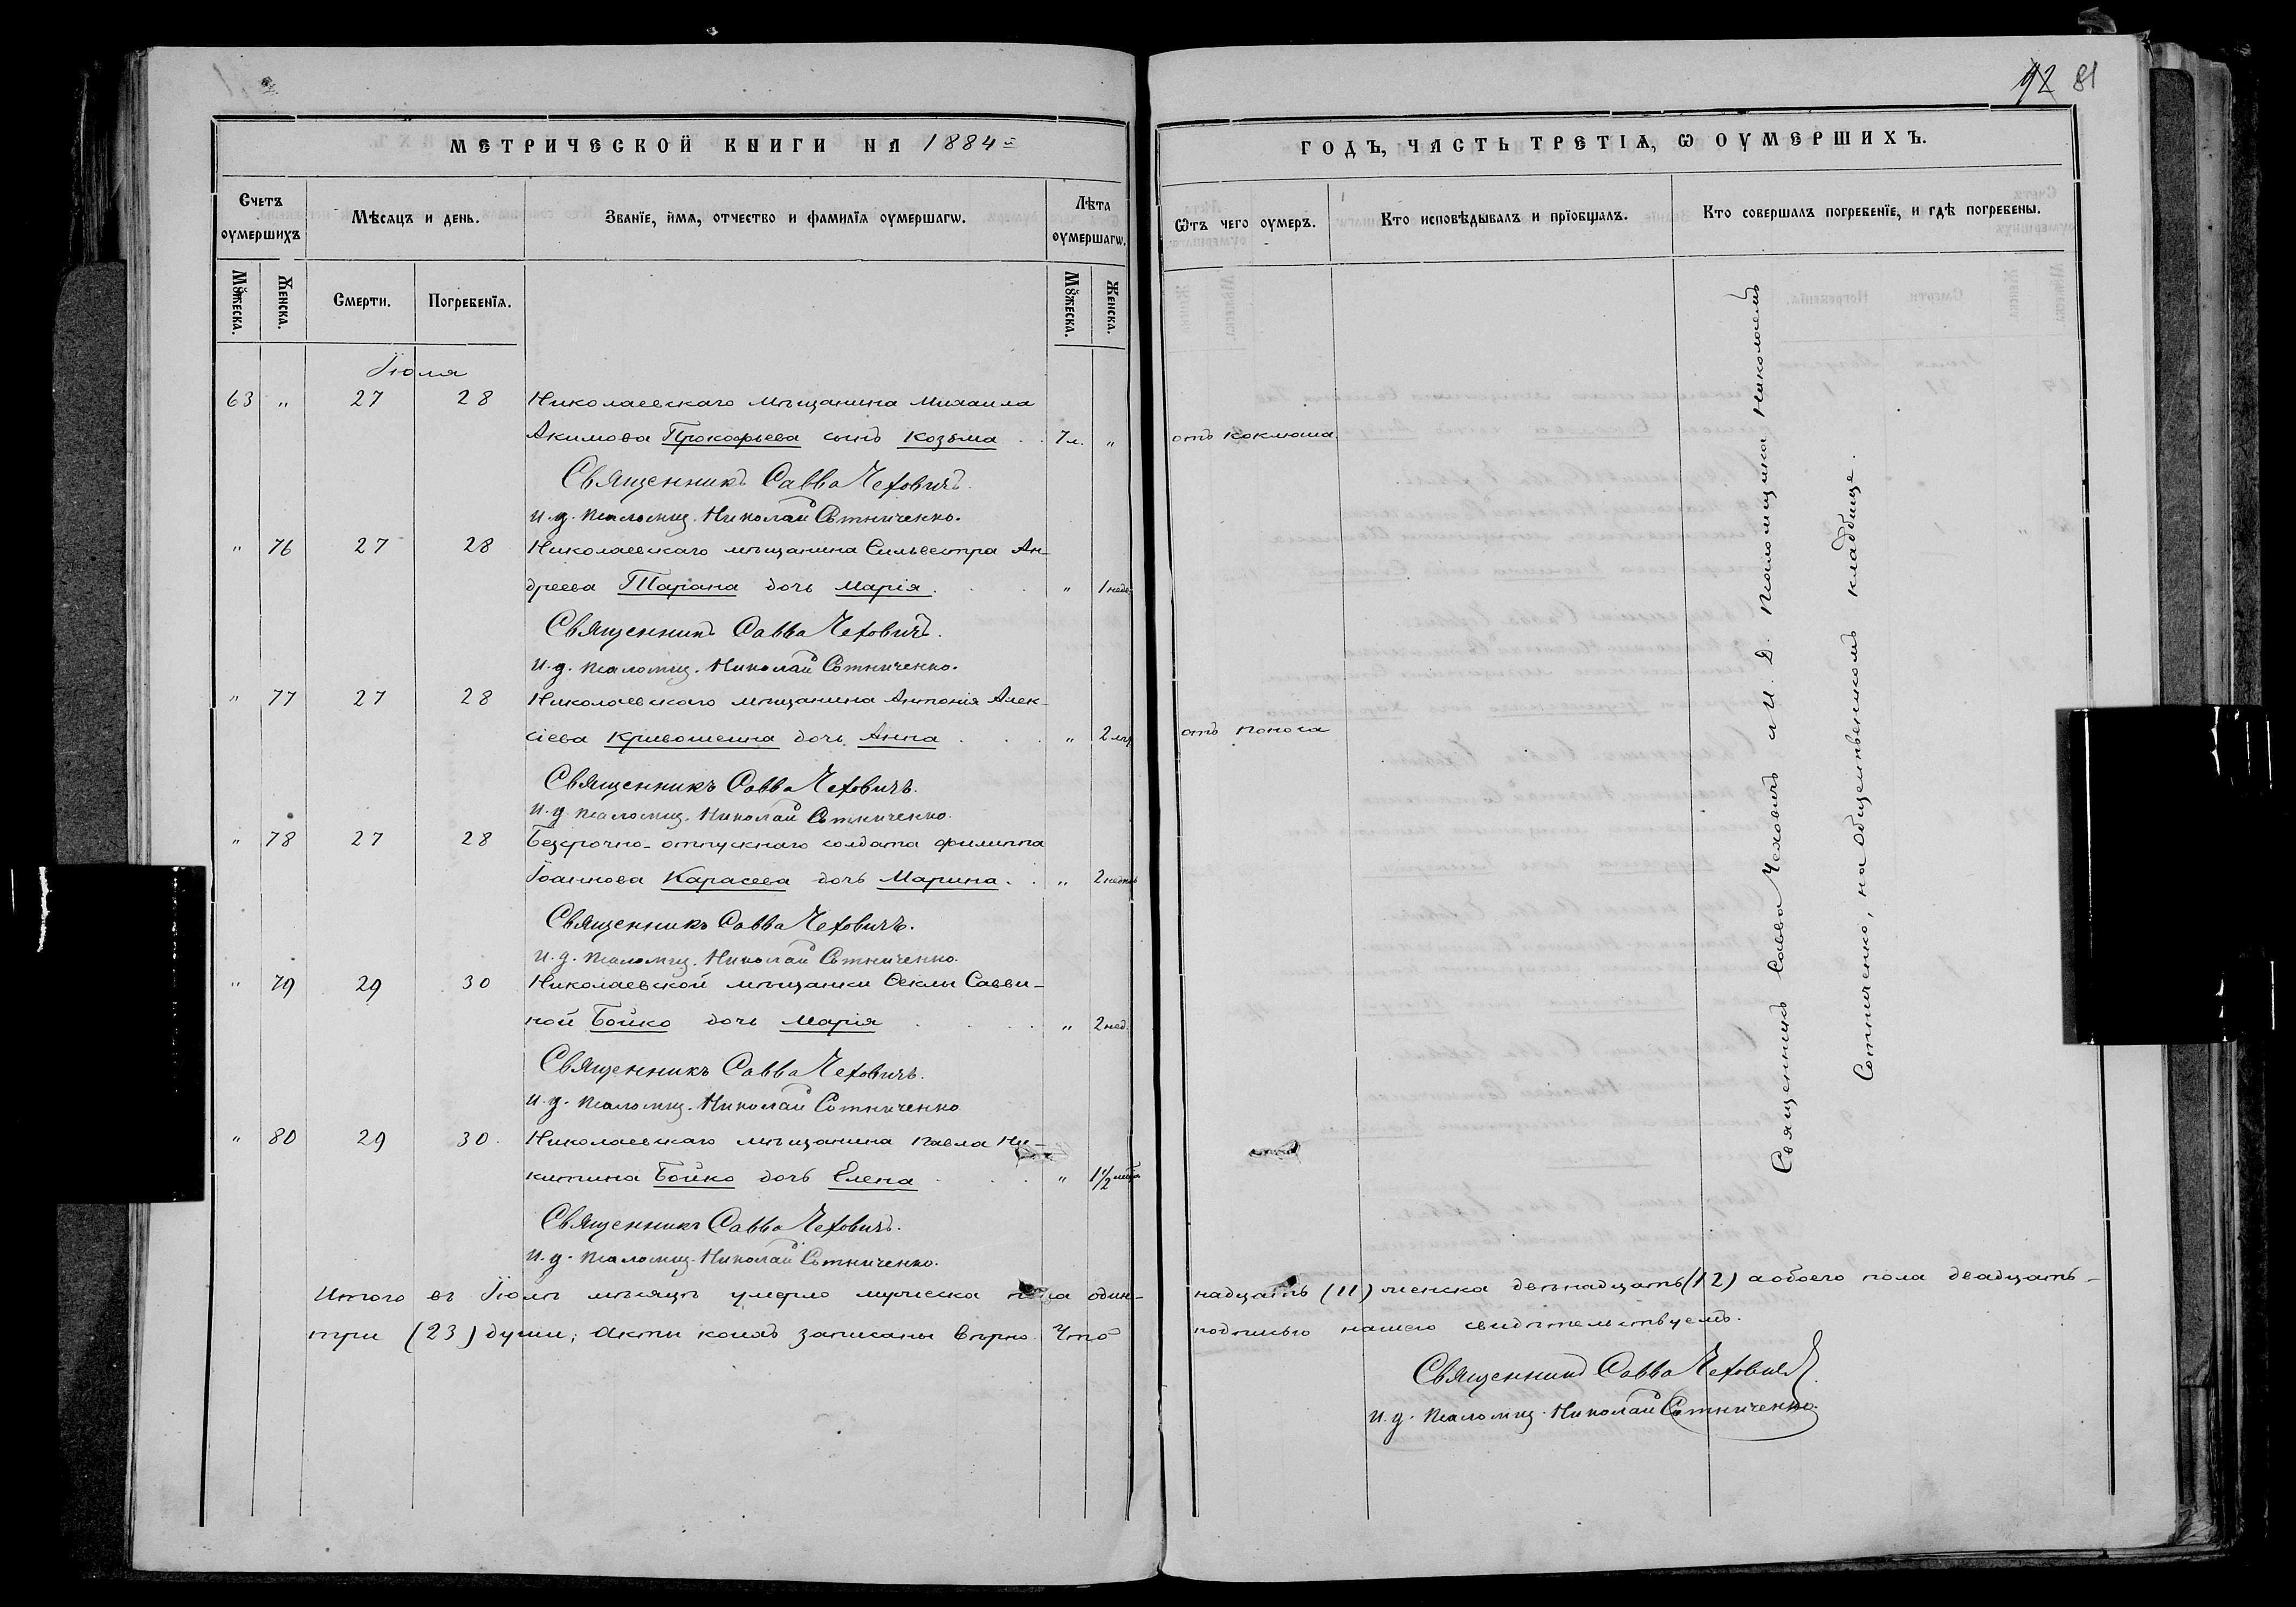 92 81
МЕТРИЧЕСКОЙ КНИГИ НА 1884й
ГОДЪ, ЧАСТЬ ТРЕТІѦ, Ѡ ОУМЕРШИХЪ.
Счетъ оумершихъ
Мѣсѧцъ и день.
Званїе, имѧ, отчество и фамилїѧ оумершагѡ.
Лѣта оумершагѡ.
Ѿтъ чего оумеръ.
Кто исповѣдывалъ и прїобщалъ.
Кто совершалъ погребенїе, и гдѣ погребены.
Мꙋжеска.
Женска.
Смерти.
Погребенїѧ.
Мꙋжеска.
Женска.
Іюля
63 " 27 28 Николаевскаго мѣщанина Михаила
Акимова Прокофьева сынъ Козьма . . 7 л. " отъ коклюша
Священникъ Савва Чеховичъ.
И. д. псаломщ. Николай Сотниченко.
" 76 27 28 Николаевскаго мѣщанина Сильвестра Ан-
дреева Тарана дочь Марія . . . " 1 нед.
Священникъ Савва Чеховичъ.
И. д. псаломщ. Николай Сотниченко.
" 77 27 28 Николаевскаго мѣщанина Антонія Алек-
сіева Кривошеина дочь Анна . . . " 2 отъ поноса
Священникъ Савва Чеховичъ.
И. д. псаломщ. Николай Сотниченко.
" 78 27 28 Безсрочно-отпускнаго солдата Филиппа
Іоаннова Карасева дочь Марина . . " 2 недѣль
Священникъ Савва Чеховичъ.
И. д. псаломщ. Николай Сотниченко.
" 79 29 30 Николаевской мѣщанки Ѳеклы Савви-
ной Бойко дочь Марія . . . " 2 нед.
Священникъ Савва Чеховичъ.
И. д. псаломщ. Николай Сотниченко
" 80 29 30. Николаевскаго мѣщанина Павла Ни-
китина Бойко дочь Елена . . . " 1 1/2 лѣта
Священникъ Савва Чеховичъ.
И. д. псаломщ. Николай Сотниченко.
Священникъ Савва Чеховичъ и И. Д. Псаломщика Николаемъ
Сотниченко, на общественномъ кладбище.
Итого въ Іюлѣ мѣсяцѣ умерло мужеска пола один-
надцать (11) женска двѣнадцать (12) а обоего пола двадцать-
три (23) души; Акты коихъ записаны вѣрно. Что
подписью нашею свидѣтельствуемъ.
Священникъ Савва Чеховичъ.
И. д. псаломщ. Николай Сотниченко.